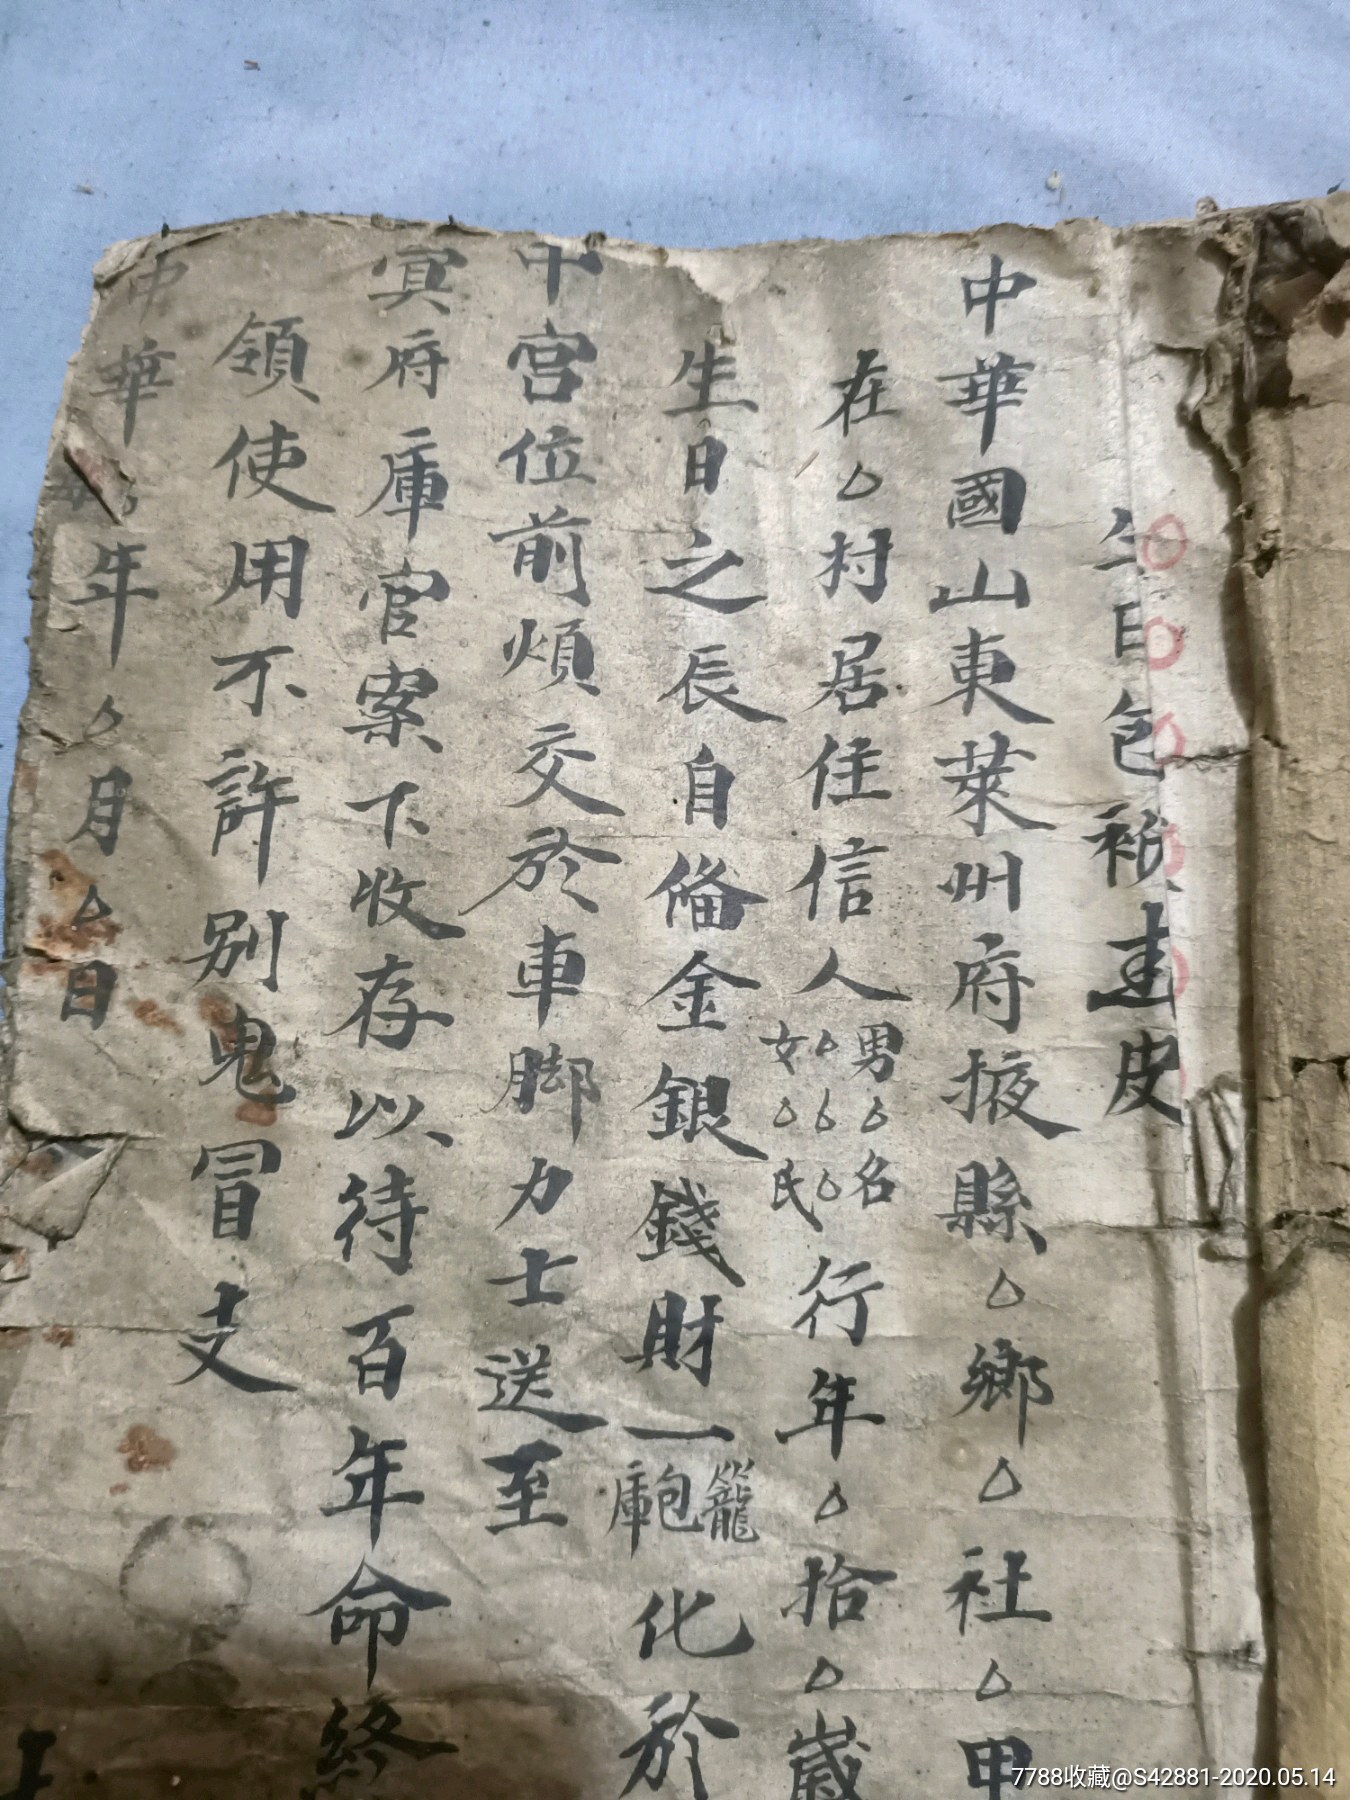 生日包袱建皮
中華國山東萊州府掖縣△鄉△社△甲
在△村居住信人男△名△△△女△氏行年△拾△歲
生日之辰自俻金銀錢財一籠䩝庫化於
中宮位前煩交於車脚力士送至
冥府庫官案下收存以待百年命終
領使用不許別鬼冒支
中華 年△月△日
7788收藏@S42881-2020.05.14